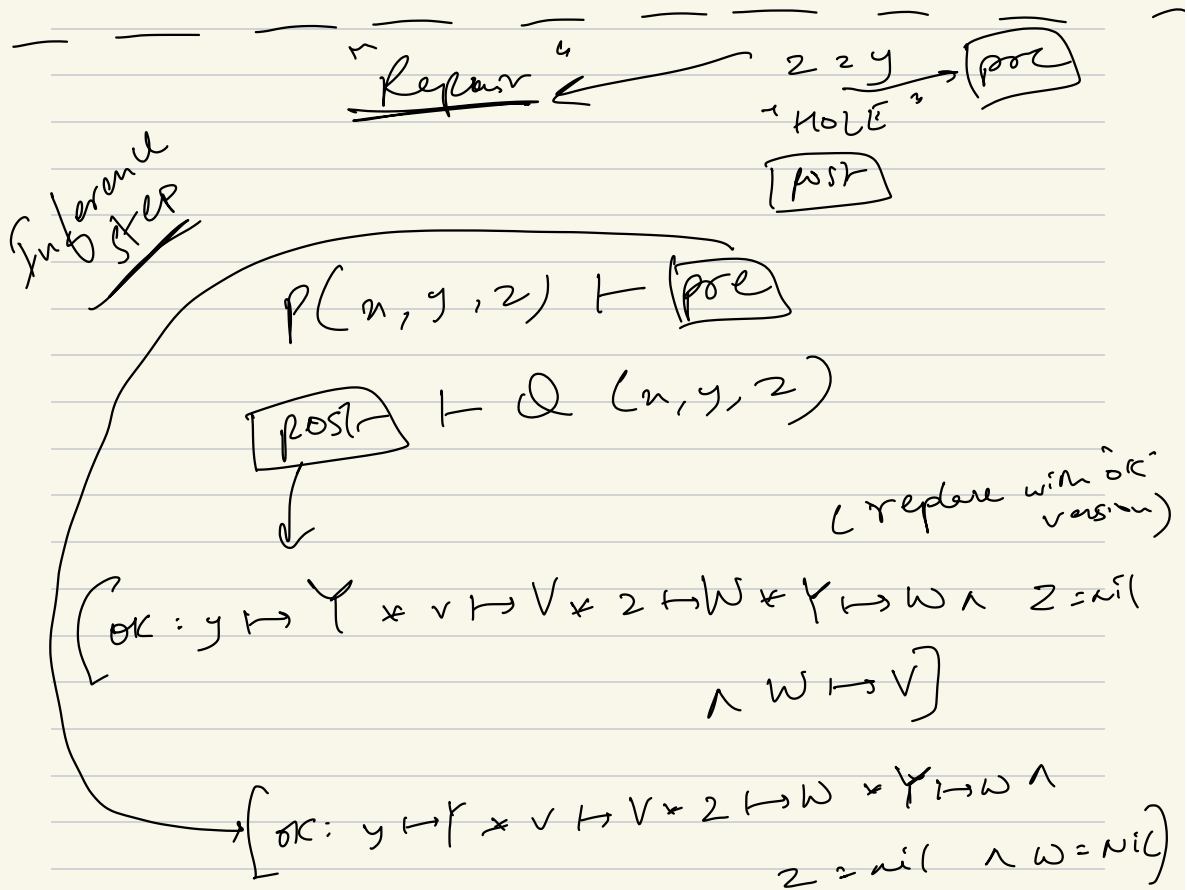 "Repair" z = y pre
"HOLE"
post
Inference
step
P(x, y, z) ⊢ pre
post ⊢ Q (x, y, z)
(replace with "ok"
version)
[ok : y ↦ Y * v ↦ V * z ↦ W * Y ↦ W ∧ Z = nil
∧ W ↦ V]
[ok : y ↦ Y * v ↦ V * z ↦ W * Y ↦ W ∧
z = nil ∧ W = Nil]